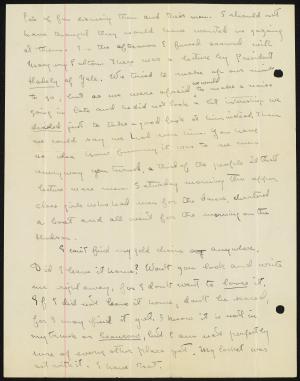 lots of fun dancing then and their men. I should not
have thought they would have wanted us gazing
at them. In the afternoon I fussed around with
Mary and Eltow. There was a lecture by President
Hadley of Yale. We tried to make up our minds
to go, but as we were afraid we would make a noise
going in late and he did not look a bit interesting we
decided just to take a good look at him instead. Then
we could say we had seen him. You have
no idea how funny it was to see men
everyway you turned, a third of the people at that
lecture were men. Saturday morning the upper
class girls who had men for the dance, chartered
a boat and all went for the morning on the
Hudson.
I can't find my gold chains anywhere,
Did I leave it home? Won't you look and write
me right away, for I don't want to loose it,
If I did not leave it home, don't be scared,
for I may find it yet. I know it is not in
my trunk or bureau, but I am not perfectly
sure of every other place yet. My locket was
not with it. I have that.